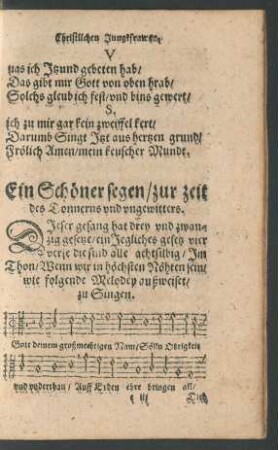 Christlichen Jungkfrawen.
V
was ich Jtzund gebeten hab/
Das gibt mir Gott von oben hrab/
Solchs gleub ich fest/vnd bins gewert/
S.
ich zu mir gar kein zweiffel kert/
Darumb Singt Jtzt aus hertzen grund/
Frölich Amen/mein keuscher Mundt.
Ein Schöner segen/zur zeit
des Tonnerns vnd vngewitters.
DJeser gesang hat drey vnd zwan-
zig gesetze/ein Jegliches gesetz vier
verse die sind alle achtsilbig/Jm
Thon/Wenn wir in höchsten Nöhten sein/
wie folgende Melodey außweiset/
zu Singen.
Gott deinem großmechtigen Nam/Solln Obrigkeit
vnd vnderthan/ Auff Erden ehre bringen all/